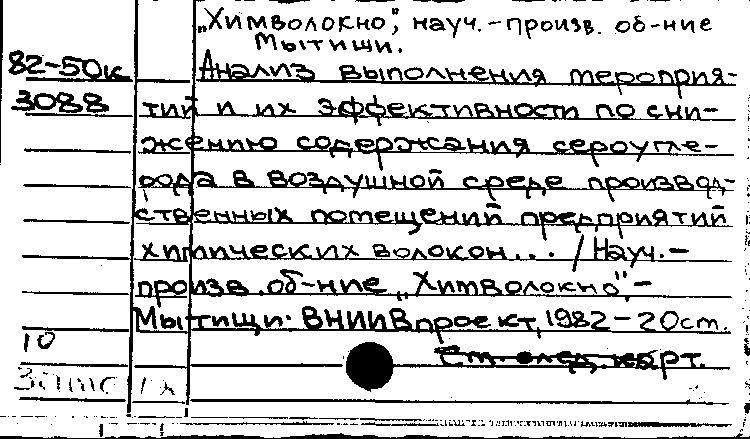 „Химволокно", науч.-произв. об-ние
Мытищи.
82-50к Анализ выполнения мероприя-
3088 тий и их эффективности по сни-
жению содержания сероугле-
рода в воздушной среде производ-
ственных помещений предприятий
химических волокон... / Науч.-
произв. об-ние „Химволокно".-
Мытищи: ВНИИВпроект, 1982 - 20 ст.
10
См. след. карт.